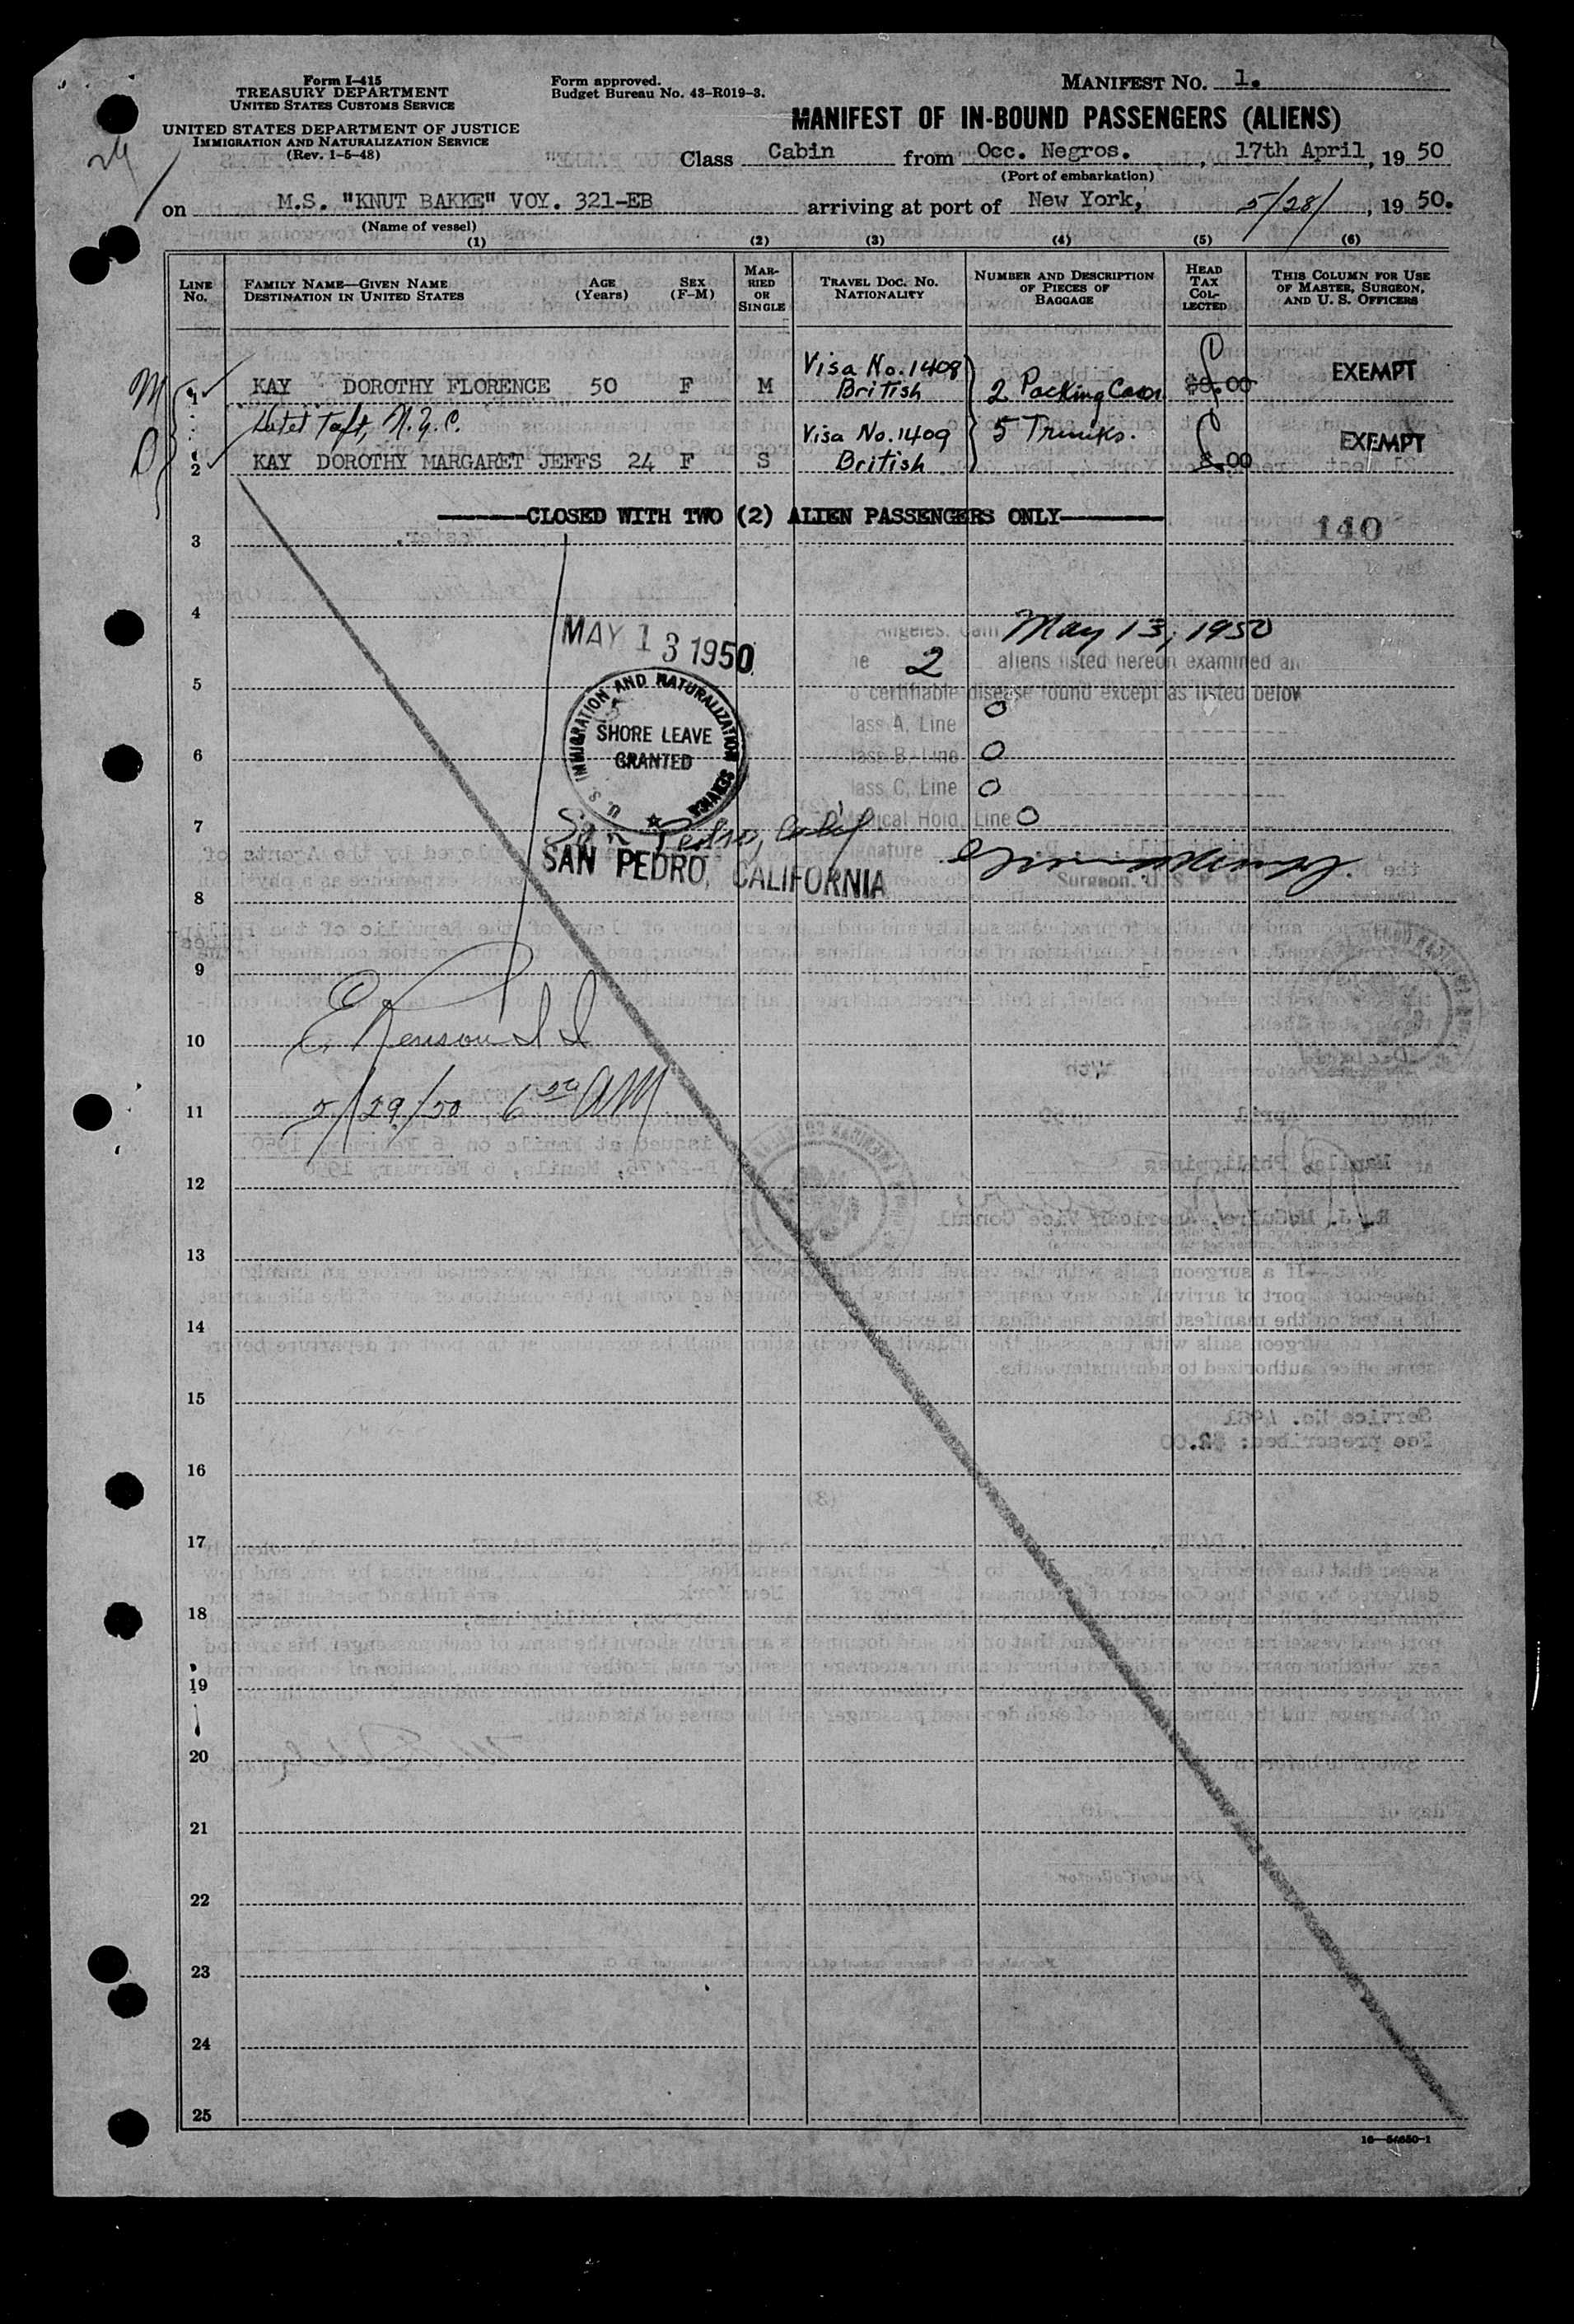 Form I-415
TREASURY DEPARTMENT
UNITED STATES CUSTOMS SERVICE
UNITED STATES DEPARTMENT OF JUSTICE
IMMIGRATION AND NATURALIZATION SERVICE
(Rev. 1-5-48)
Form approved.
Budget Bureau No. 43-R019-3.
MANIFEST No. 1.
MANIFEST OF IN-BOUND PASSENGERS (ALIENS)
Class Cabin from Occ. Negros. , 17th April, 19 50
(Port of embarkation)
on M.S. "KNUT BAKKE" VOY. 321-EB arriving at port of New York, 5/28/ , 19 50.
(Name of vessel)
(1) (2) (3) (4) (5) (6)
LINE No.
FAMILY NAME—GIVEN NAME
DESTINATION IN UNITED STATES
AGE (Years)
SEX (F-M)
MARRIED OR SINGLE
TRAVEL DOC. NO.
NATIONALITY
NUMBER AND DESCRIPTION
OF PIECES OF
BAGGAGE
HEAD TAX COLLECTED
THIS COLUMN FOR USE
OF MASTER, SURGEON,
AND U. S. OFFICERS
M
Visa No. 1408
1 KAY DOROTHY FLORENCE 50 F M British 2 Packing Cases $8.00 EXEMPT
Hotel Taft, N.Y.C.
D
Visa No. 1409 5 Trunks.
2 KAY DOROTHY MARGARET JEFFS 24 F S British 8.00 EXEMPT
CLOSED WITH TWO (2) ALIEN PASSENGERS ONLY
140
3
4
MAY 13 1950
Angeles, Cal May 13, 1950
2 aliens listed hereon examined an
5
o certifiable disease found except as listed below
U. S. IMMIGRATION AND NATURALIZATION SERVICE
SHORE LEAVE
GRANTED
lass A, Line 0
6
lass B, Line 0
lass C, Line 0
7
Medical Hold, Line 0
San Pedro, Calif
SAN PEDRO, CALIFORNIA
ignature
Surgeon, U. S. P. H.
8
9
10
11
5/29/50 6 30 AM
12
13
14
15
16
17
18
19
20
21
22
23
24
25